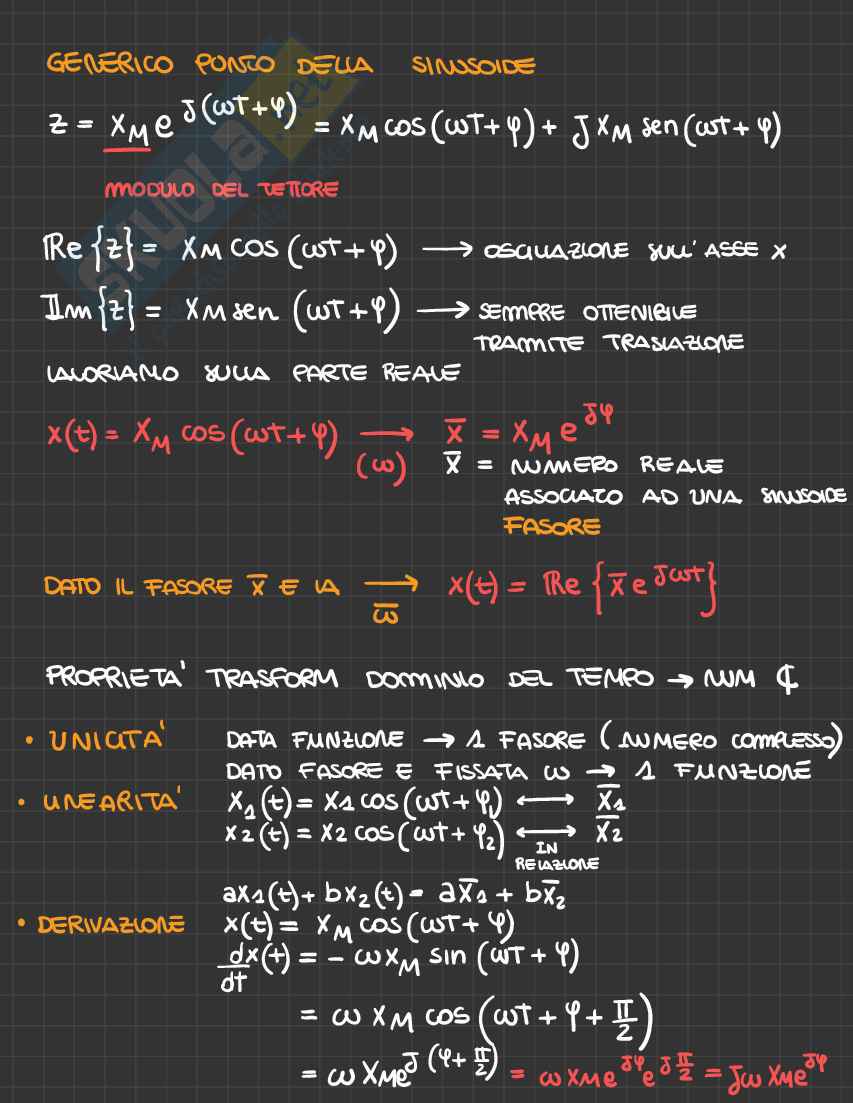 GENERICO PUNTO DELLA SINUSOIDE
z = X_M e^{J(ωt+φ)} = X_M cos(ωt+φ) + J X_M sen(ωt+φ)
MODULO DEL VETTORE
Re{z} = X_M cos(ωt+φ) → OSCILLAZIONE SULL'ASSE x
Im{z} = X_M sen(ωt+φ) → SEMPRE OTTENIBILE
TRAMITE TRASLAZIONE
LAVORIAMO SULLA PARTE REALE
x(t) = X_M cos(ωt+φ) → (ω) X̅ = X_M e^{Jφ}
X̅ = NUMERO REALE
ASSOCIATO AD UNA SINUSOIDE
FASORE
DATO IL FASORE X̅ E LA → ω̅ x(t) = Re{X̅ e^{Jωt}}
PROPRIETA' TRASFORM DOMINIO DEL TEMPO → NUM ℂ
• UNICITA' DATA FUNZIONE → 1 FASORE (NUMERO COMPLESSO)
DATO FASORE E FISSATA ω → 1 FUNZIONE
• LINEARITA' X1(t) = X1 cos(ωt+φ1) ↔ X̅1
X2(t) = X2 cos(ωt+φ2) ↔ X̅2
IN
RELAZIONE
aX1(t) + bX2(t) = aX̅1 + bX̅2
• DERIVAZIONE x(t) = X_M cos(ωt+φ)
d/dt x(t) = - ω X_M sin(ωt+φ)
= ω X_M cos(ωt+φ+π/2)
= ω X_M e^{J(φ+π/2)} = ω X_M e^{Jφ} e^{Jπ/2} = Jω X_M e^{Jφ}
SKUOLA.net